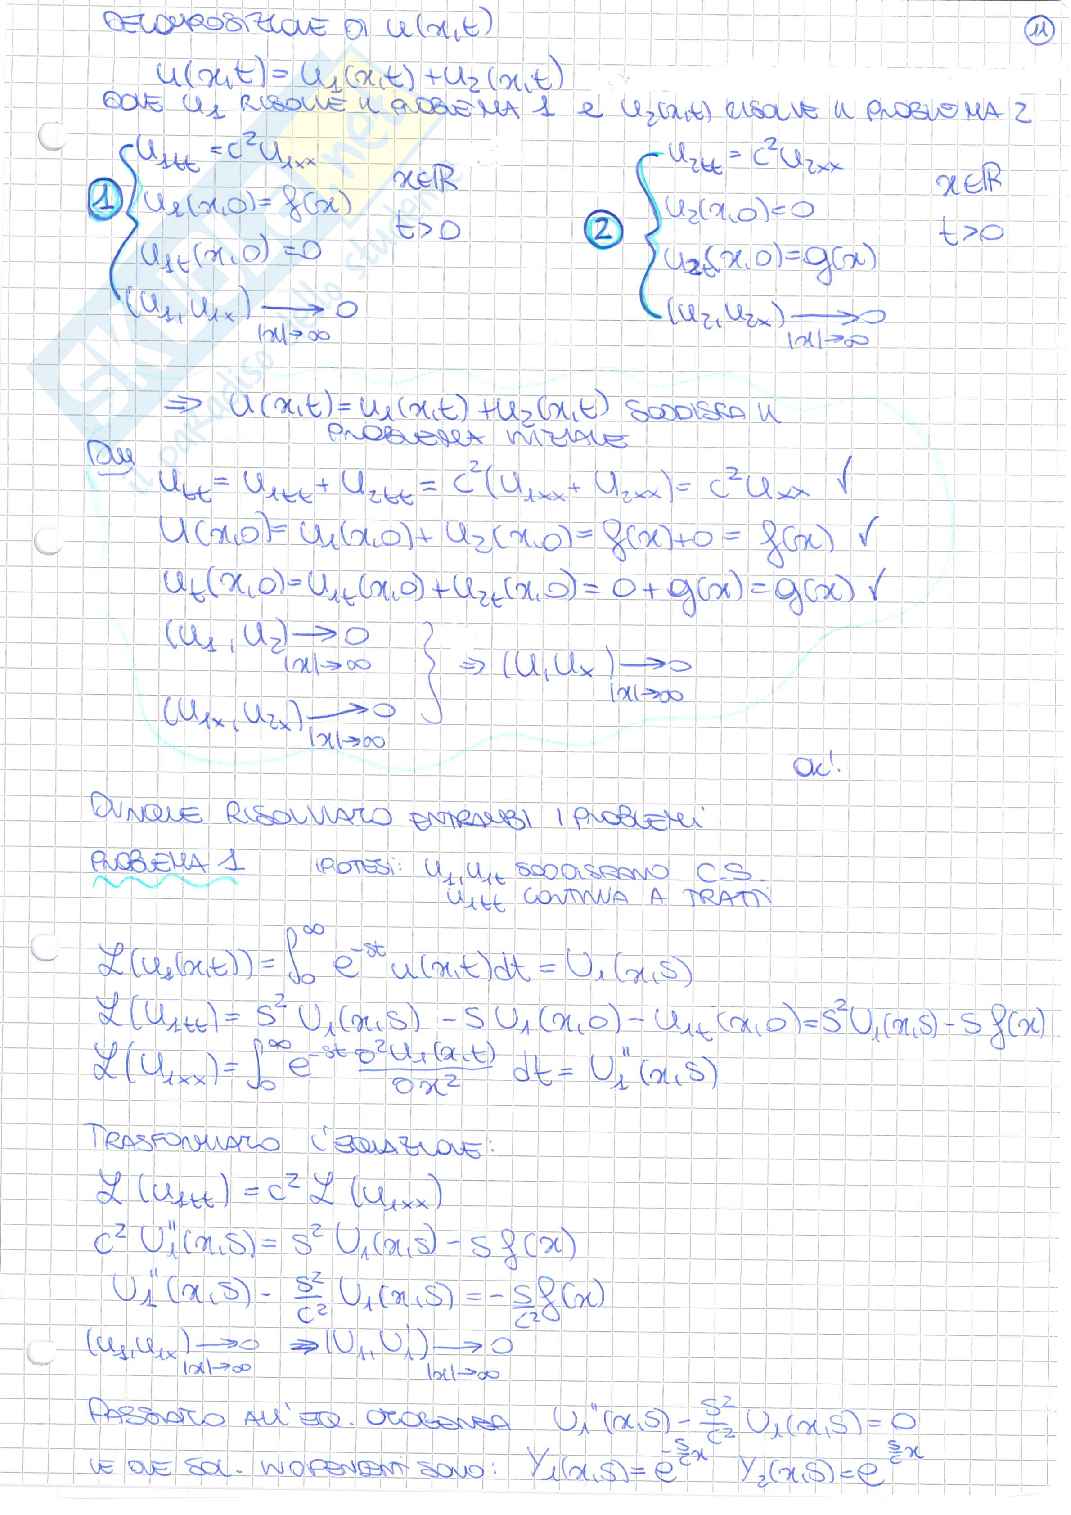 DECOMPOSIZIONE DI u(x,t)
11
u(x,t) = u₁(x,t) + u₂(x,t)
DOVE u₁ RISOLVE IL PROBLEMA 1 e u₂(x,t) RISOLVE IL PROBLEMA 2
1
u₁tt = c² u₁xx
u₁(x,0) = f(x)
u₁t(x,0) = 0
(u₁, u₁x) → 0
|x|→∞
x∈ℝ
t>0
2
u₂tt = c² u₂xx
u₂(x,0) = 0
u₂t(x,0) = g(x)
(u₂, u₂x) → 0
|x|→∞
x∈ℝ
t>0
⇒ u(x,t) = u₁(x,t) + u₂(x,t) SODDISFA IL
PROBLEMA INIZIALE
Dim
utt = u₁tt + u₂tt = c²(u₁xx + u₂xx) = c² uxx ✓
u(x,0) = u₁(x,0) + u₂(x,0) = f(x)+0 = f(x) ✓
ut(x,0) = u₁t(x,0) + u₂t(x,0) = 0 + g(x) = g(x) ✓
(u₁, u₂) → 0
|x|→∞
(u₁x, u₂x) → 0
|x|→∞
⇒ (u, ux) → 0
|x|→∞
OK!
DUNQUE RISOLVIAMO ENTRAMBI I PROBLEMI
PROBLEMA 1 IPOTESI: u₁, u₁t SODDISFANO C.S.
u₁tt CONTINUA A TRATTI
ℒ(u₁(x,t)) = ∫₀^∞ e^-st u(x,t)dt = U₁(x,s)
ℒ(u₁tt) = s² U₁(x,s) - s U₁(x,0) - u₁t(x,0) = s² U₁(x,s) - s f(x)
ℒ(u₁xx) = ∫₀^∞ e^-st ∂²u₁(x,t)/∂x² dt = U₁''(x,s)
TRASFORMIAMO L'EQUAZIONE:
ℒ(u₁tt) = c² ℒ(u₁xx)
c² U₁''(x,s) = s² U₁(x,s) - s f(x)
U₁''(x,s) - s²/c² U₁(x,s) = - s/c² f(x)
(u₁, u₁x) → 0 ⇒ (U₁, U₁') → 0
|x|→∞ |x|→∞
PASSIAMO ALL'EQ. OMOGENEA U₁''(x,s) - s²/c² U₁(x,s) = 0
LE DUE SOL. INDIPENDENTI SONO: Y₁(x,s) = e^-s/c x Y₂(x,s) = e^s/c x
skuola.net
il paradiso dello studente